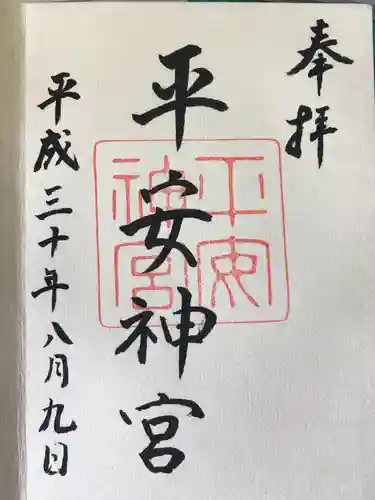 奉拝
平安神宮
平安神宮
平成三十年八月九日